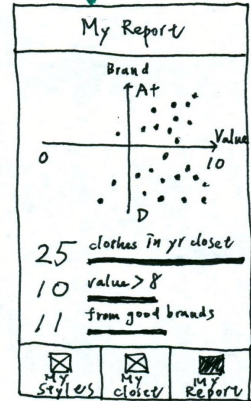 My Report
Brand
A+
Value
0
10
D
25 clothes in yr closet
10 value > 8
11 from good brands
My Stylers
My Closet
My Report